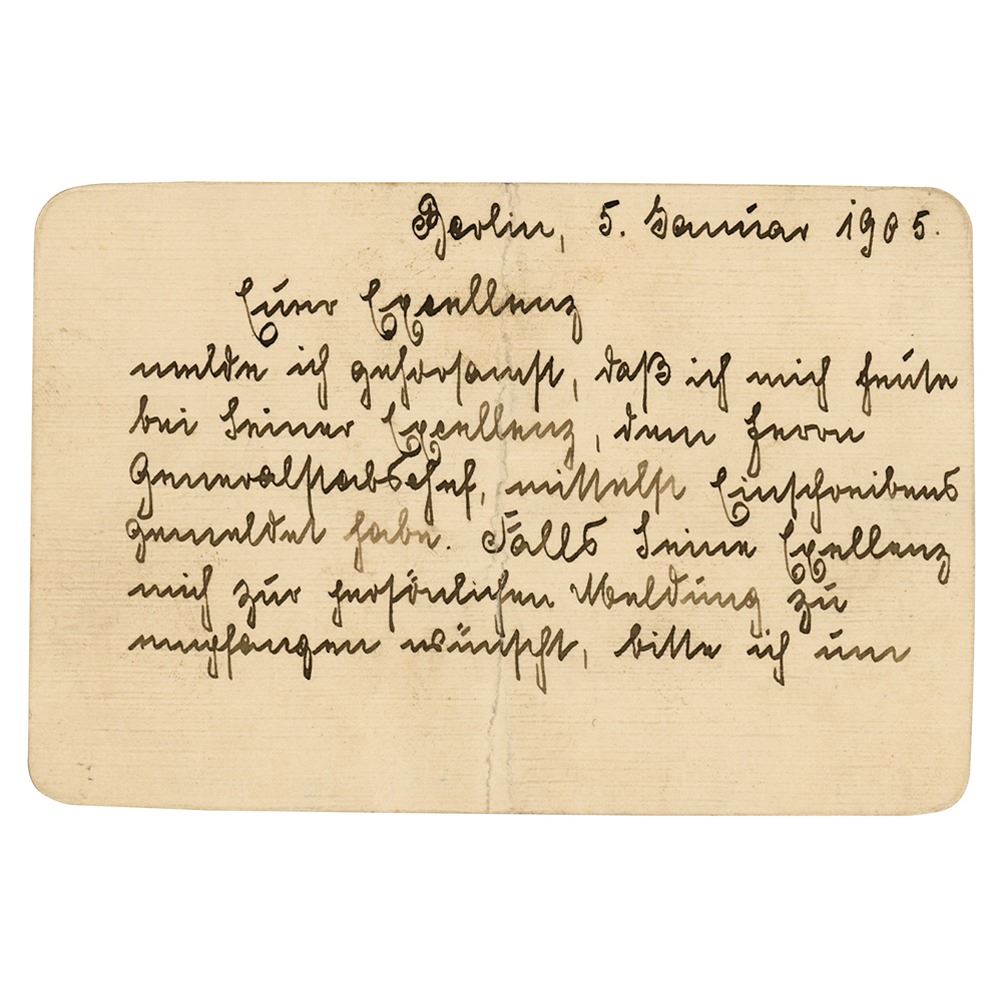 Berlin, 5. Januar 1905.
Euer Excellenz
melde ich gehorsamst, daß ich mich heute
bei Seiner Excellenz, dem Herrn
Generalstabschef, mittelst Einschreibens
gemeldet habe. Falls Seine Exellenz
mich zur persönlichen Meldung zu
empfangen wünscht, bitte ich um